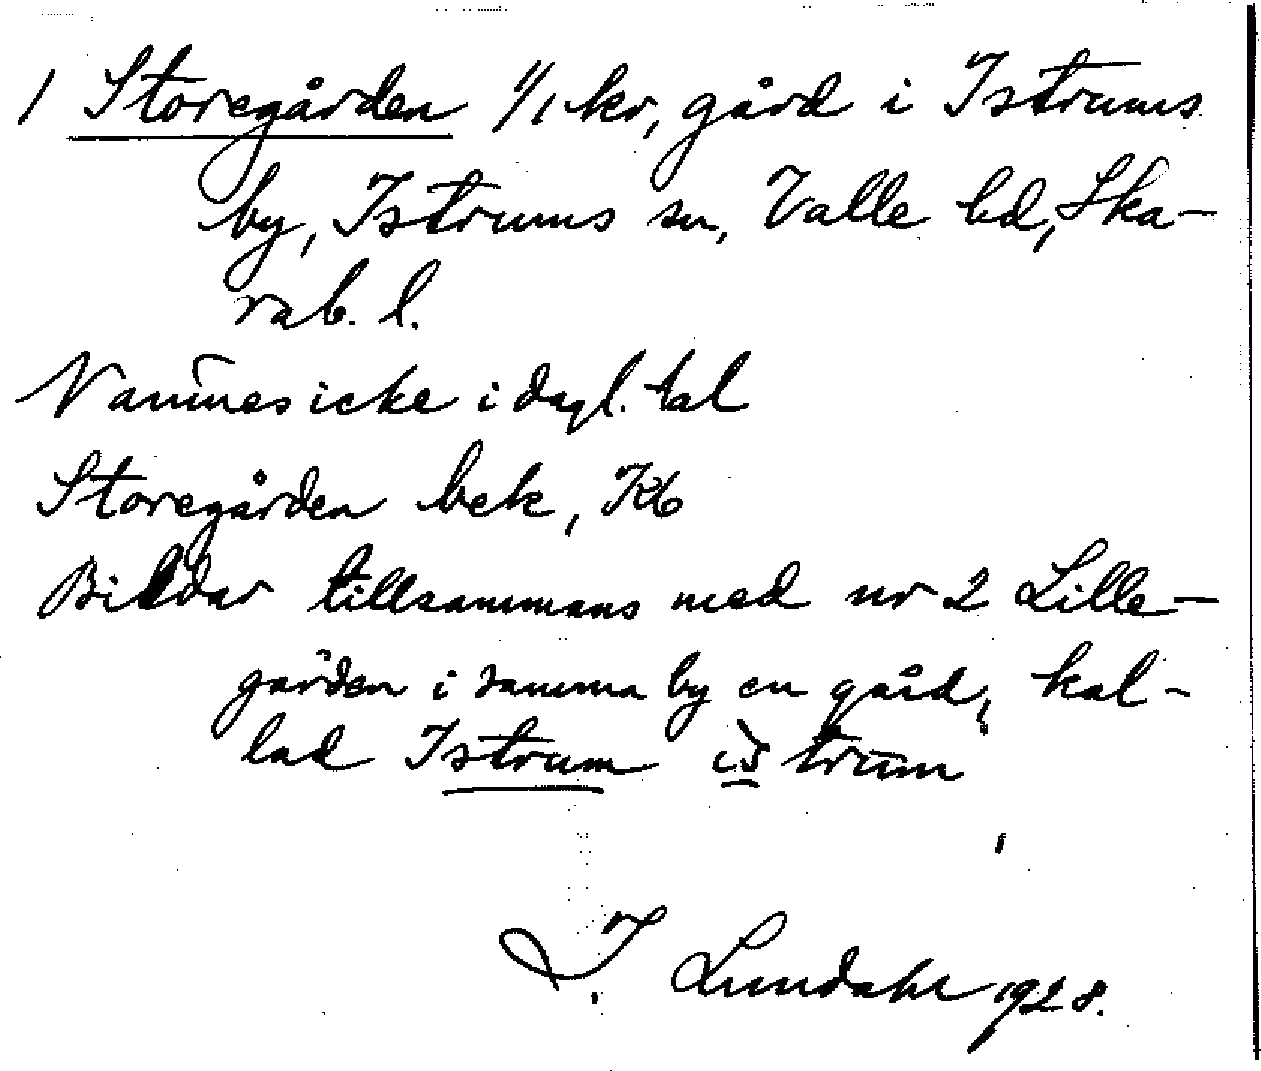 1 Storegården 1/1 kr, gård i Istrums
by, Istrums sn, Valle hd, Ska-
rab. l.
Namnes icke i dagl. tal
Storegården bek, Kb
Bildar tillsammans med nr 2 Lille-
gården i samma by en gård, kal-
lad Istrum ìstrum
I. Lundahl 1928.